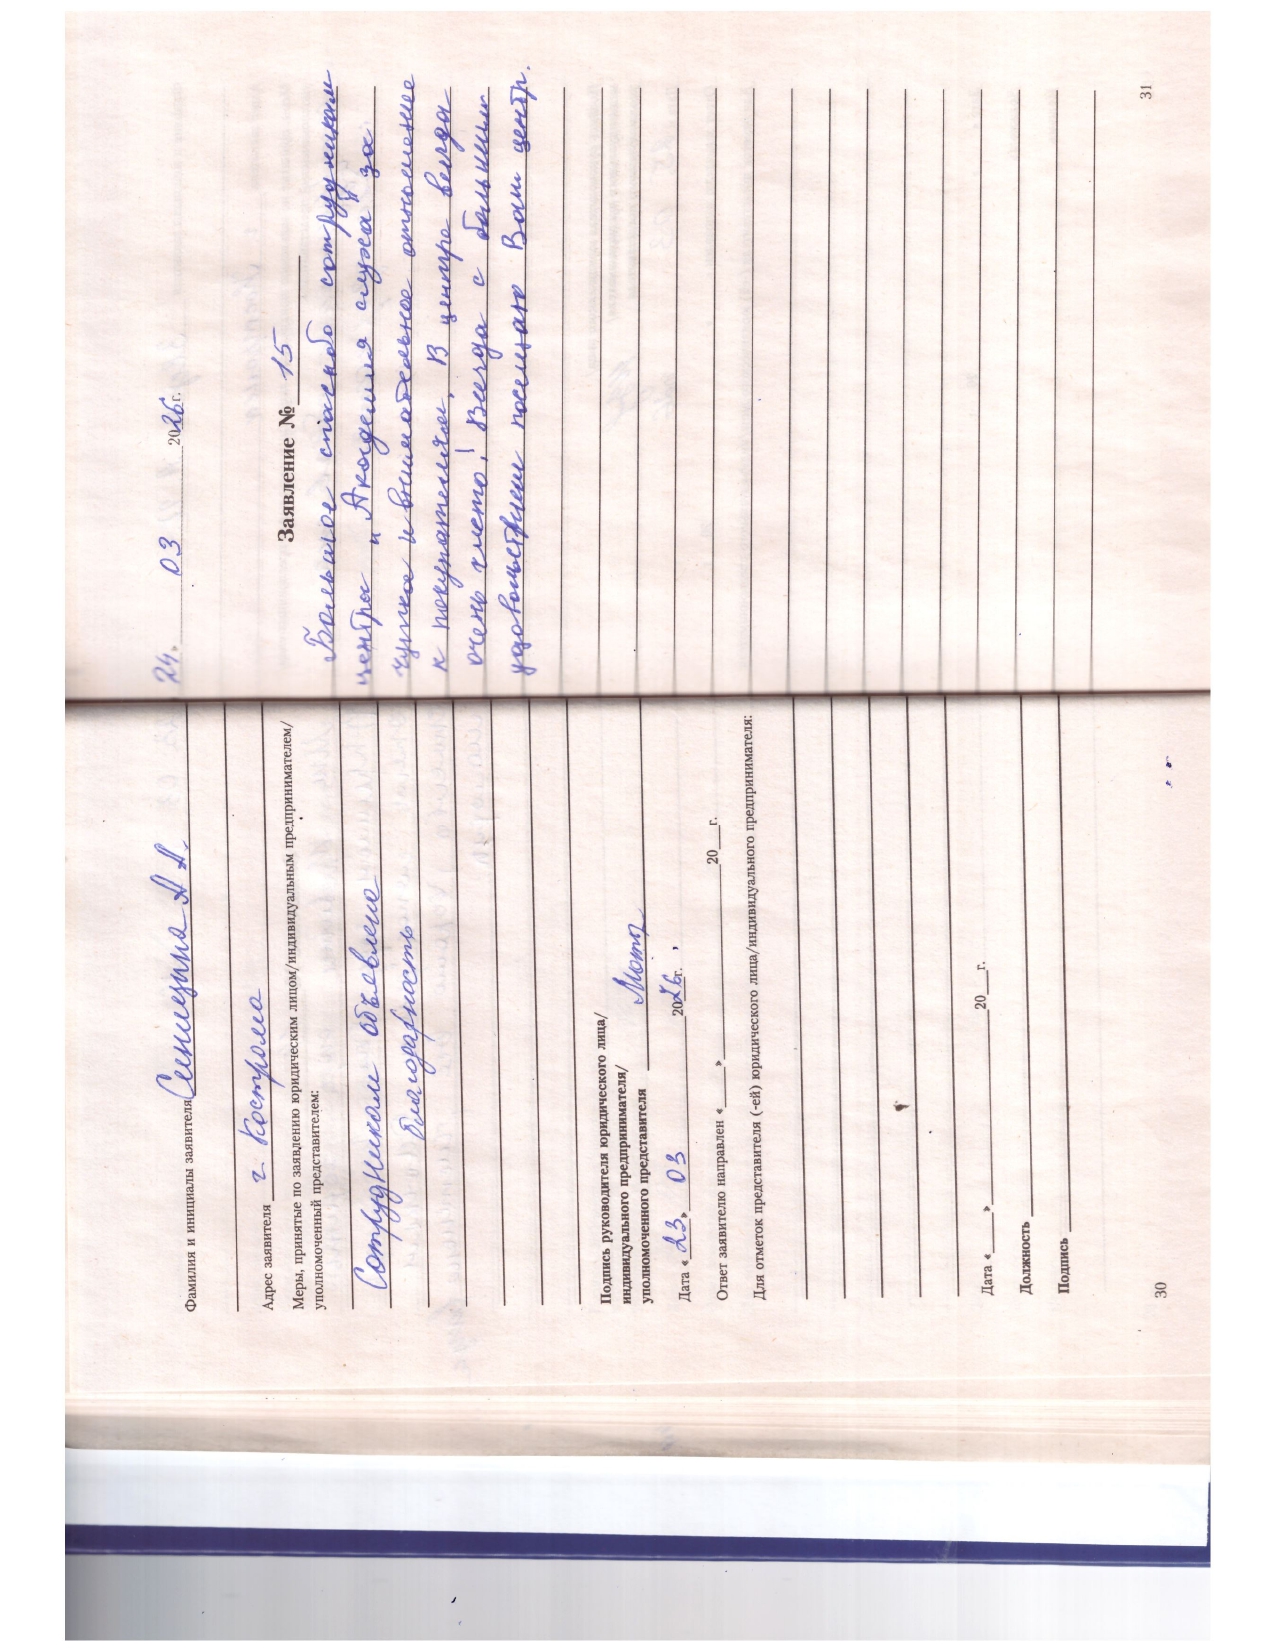 Фамилия и инициалы заявителя Синицына А А.
Адрес заявителя г. Кострома
Меры, принятые по заявлению юридическим лицом/индивидуальным предпринимателем/
уполномоченный представителем:
Сотрудникам объявлена
благодарность
Подпись руководителя юридического лица/
индивидуального предпринимателя/
уполномоченного представителя
Дата «23» 03 2026г.
Ответ заявителю направлен «___»___20___г.
Для отметок представителя (-ей) юридического лица/индивидуального предпринимателя:
Дата «___»___20___г.
Должность
Подпись
30
24» 03 2026г.
Заявление № 15
Большое спасибо сотрудникам
центра и Академия слуха за
чуткое и внимательное отношение
к покупателям. В центре всегда
очень чисто! Всегда с большим
удовольствием посещаю Ваш центр.
31